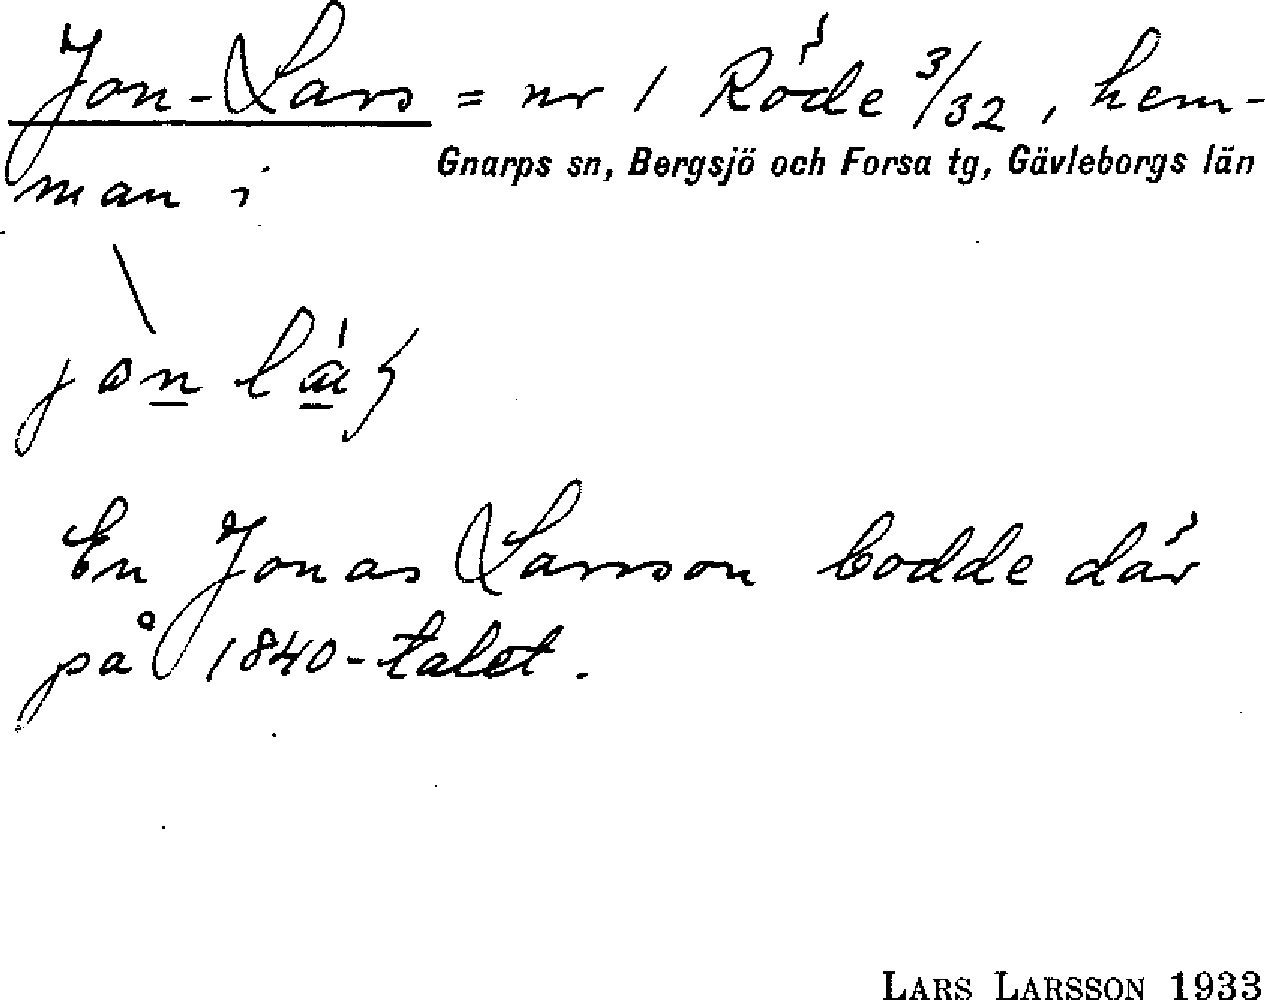 Jon-Lars = nr 1 Röde 3/32, hem-
Gnarps sn, Bergsjö och Forsa tg, Gävleborgs län
man i
jon
En Jonas Larsson bodde där
på 1840-talet.
LARS LARSSON 1933